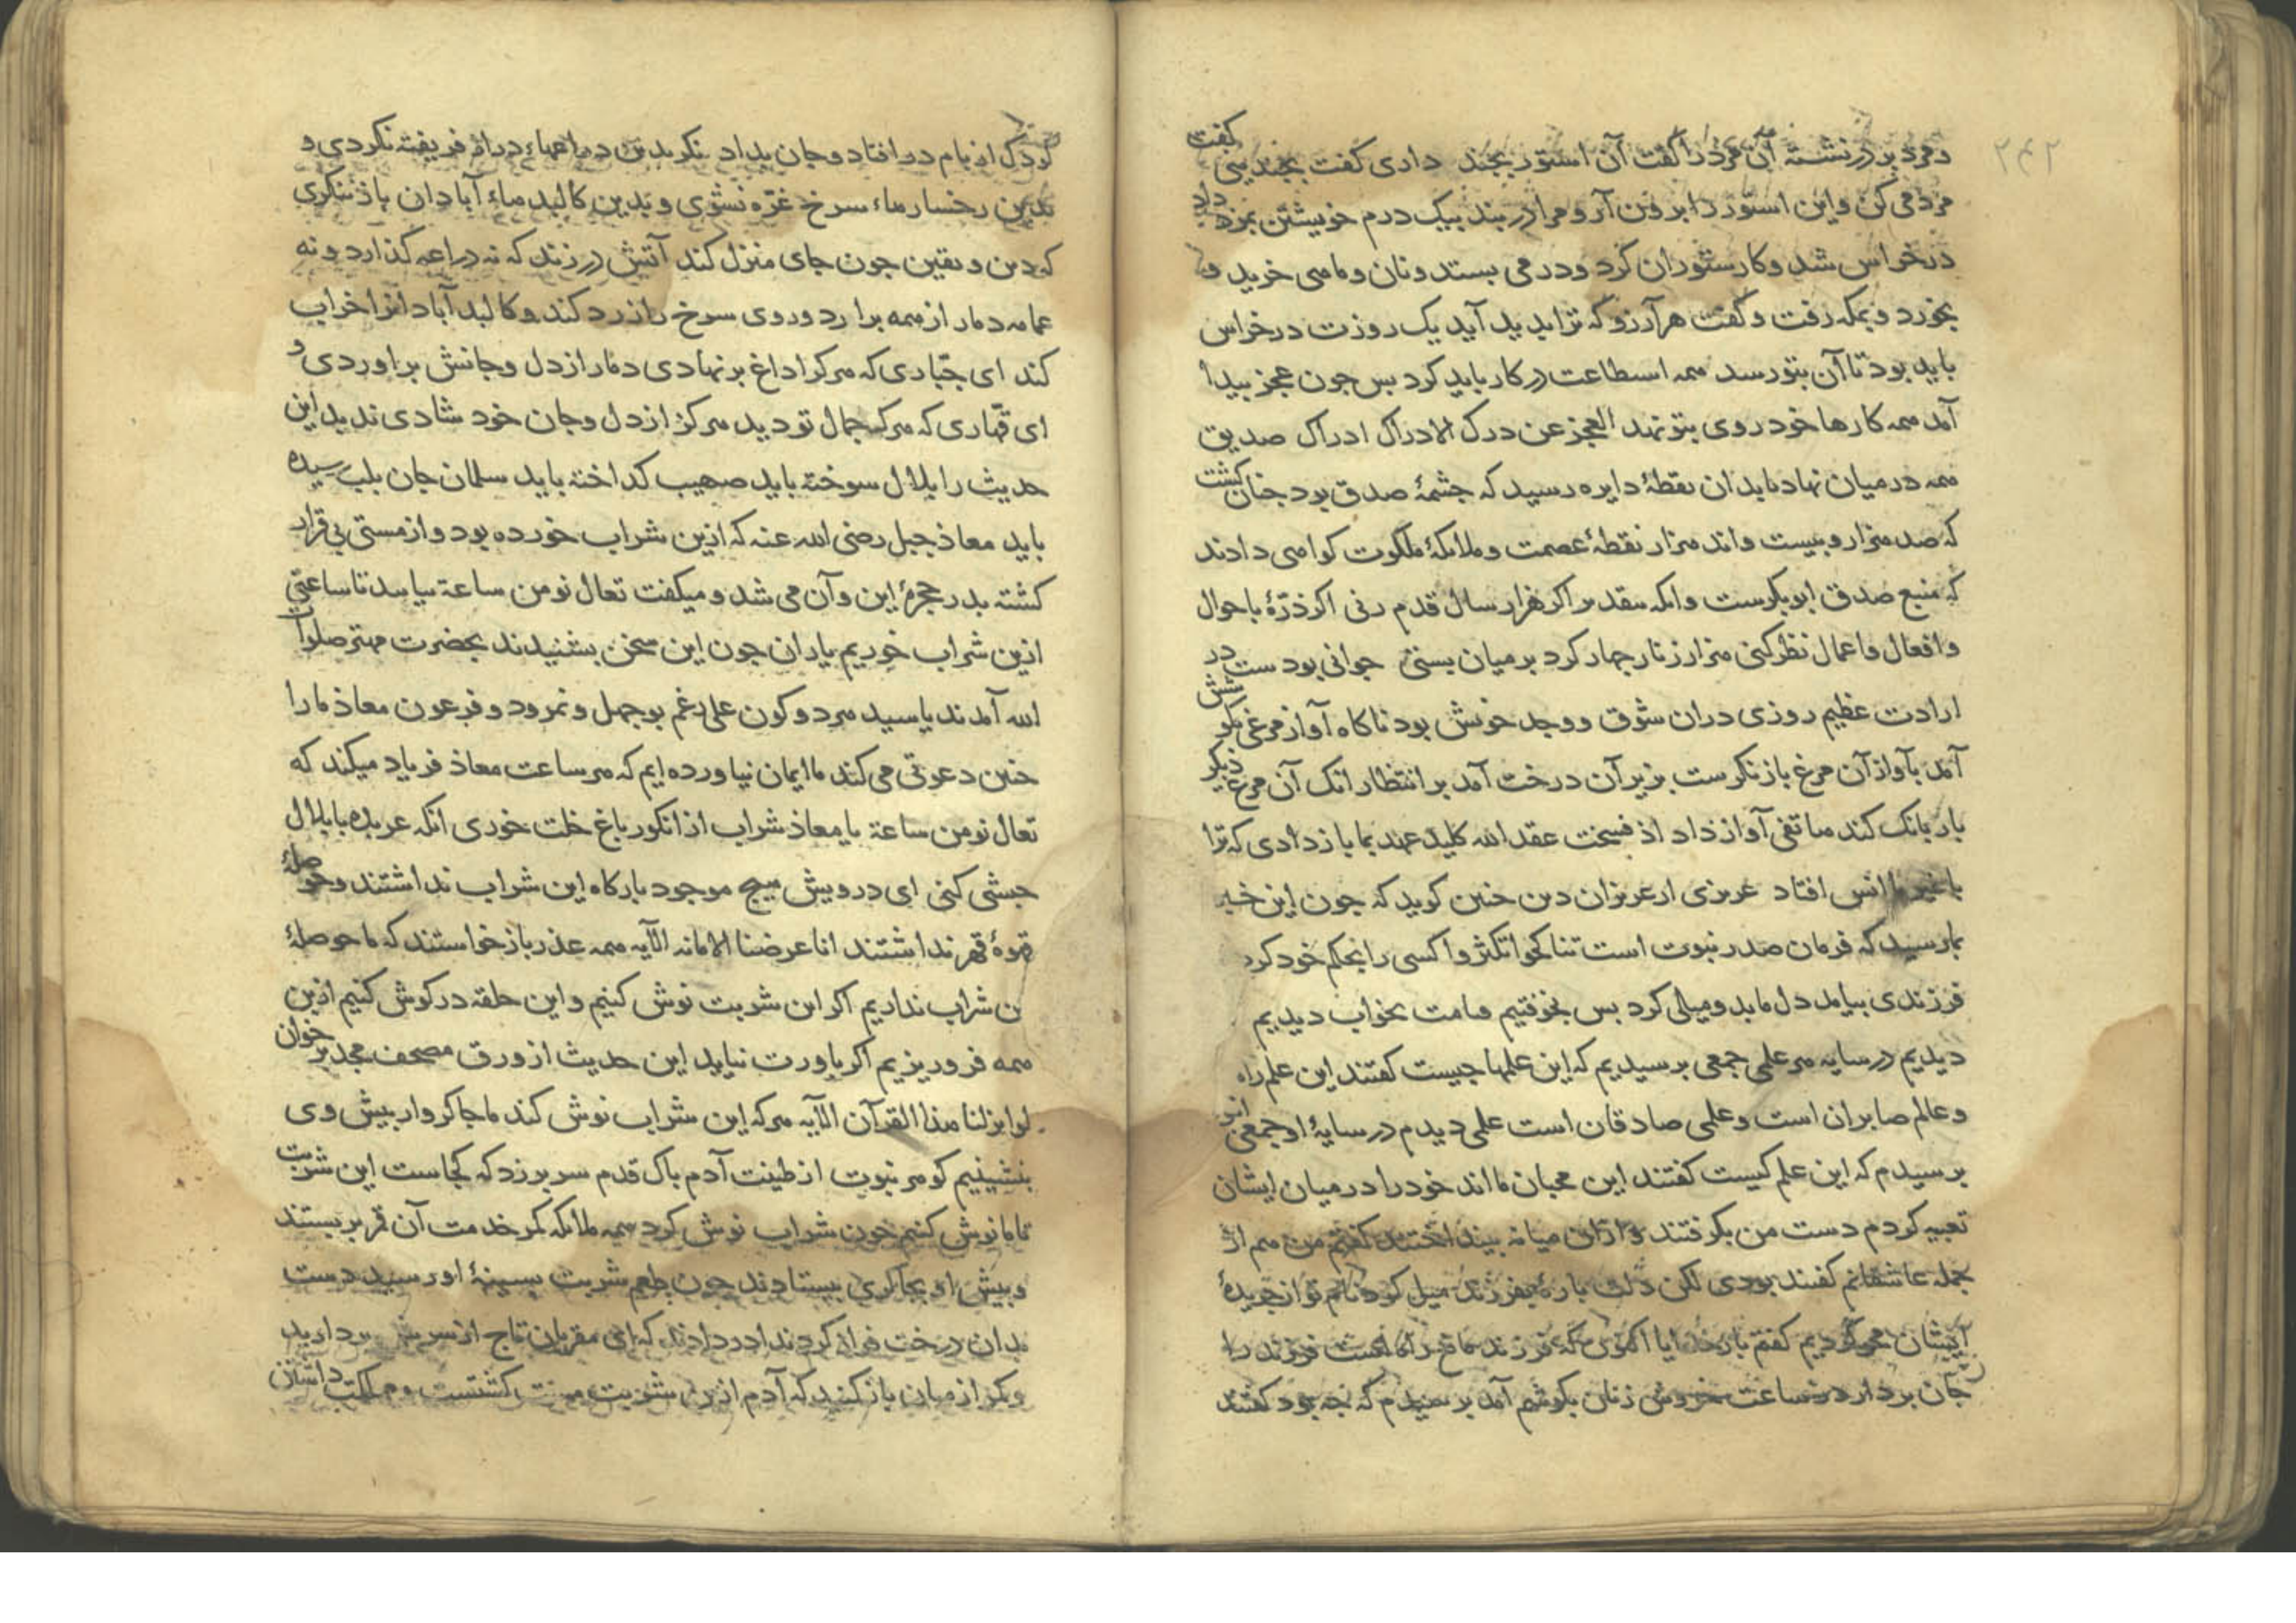 ۲۴۲
و مرد بر در نشسته آن مرد را گفت آن استور بچند دادی گفت بچند سی گفت
مزد می کن و این استور را برون آر و مرا در بند بیک درم خویشتن بمزد داد
در خراس شد و کار ستوران کرد و درمی بستد و نان و ماهی خرید و
بخورد و بمکه رفت و گفت هر آرزو که ترا بدید آید یک روزت در خراس
باید بود تا آن بتو رسد همه استطاعت در کار باید کرد بس جون عجز بیدا
آمد همه کارها خود روی بتو نهد العجز عن درک الادراک ادراک صدیق
همه در میان نهاد تا بدان نقطهٔ دایره رسید که جشمهٔ صدق بود جنان گشت
که صد هزار و بیست و اند هزار نقطهٔ عصمت و ملائکهٔ ملکوت گواهی دادند
که منبع صدق ابوبکرست و انکه بقدیر اگر هزار سال قدم زنی اگر ذرّهٔ باحوال
و افعال و اعمال نظر کنی هزار زنار جهار کرد بر میان بستی جوانی بودست در
ارادت عظیم روزی دران شوق و وجد خوش بود ناکاه آواز مرغی بگوشش
آمد بآواز آن مرغ باز نگرست بزیر آن درخت آمد بر انتظار انک آن مرغ دیگر
بار بانک کند هاتفی آواز داد اذ فسخت عقد الله کلید عهد بما باز دادی که ترا
با غیر ما انس افتاد عزیزی از عزیزان دین جنین گوید که جون این خبر
بما رسید که فرمان صدر نبوت است تناکحوا تکثروا کسی را بحکم خود کرد
فرزندی بیامد دل ما بدو میلی کرد بس بخوفتیم قیامت بخواب دیدیم
دیدیم در سایه هر علمی جمعی برسیدیم که این علمها جیست گفتند این علم راه
و عالم صابران است و علمی صادقان است علمی دیدم در سایهٔ او جمعی انبوه
برسیدم که این علم کیست گفتند این محبان ما اند خود را در میان ایشان
تعبیه کردم دست من بگرفتند و ازان میانه بینداختند گفتم من هم از
جمله عاشقانم گفتند بودی لکن دلت باره بفرزند میل کرد نام تو از جریدهٔ
ایشان محو کردیم گفتم بار خدایا اکنون که فرزند مانع راه است فرزند را
جان بردار در ساعت خروش زنان بگوشم آمد برسیدم که جه بود گفتند
کودک از بام در افتاد و جان بداد نگر بدین دراعهاء دراز فریفته نگردی و
بدین رخسارهاء سرخ غرّه نشوی و بدین کالبدهاء آبادان باز ننگری
که دین و یقین جون جای منزل کند آتش در زند که نه دراعه گذارد و نه
عمامه دمار از همه برارد و روی سرخ را زرد کند و کالبد آبادانرا خراب
کند ای جبّاری که هر کرا داغ بر نهادی دمار از دل و جانش براوردی و
ای قهّاری که هر که جمال تو دید هرگز از دل و جان خود شادی ندید این
حدیث را بلال سوخته باید صهیب گداخته باید سلمان جان بلب رسیده
باید معاذ جبل رضی الله عنه که ازین شراب خورده بود و از مستی بی قرار
گشته بدر حجرهٔ این و آن می شد و میگفت تعال نومن ساعة بیایید تا ساعتی
ازین شراب خوریم یاران جون این سخن بشنیدند بحضرت مهتر صلوات
الله آمدند یا سید هر دو کون علی رغم بوجهل و نمرود و فرعون معاذ ما را
جنین دعوتی می کند ما ایمان نیاورده ایم که هر ساعت معاذ فریاد میکند که
تعال نومن ساعة یا معاذ شراب از انگور باغ خلت خوری انگه عربده با بلال
حبشی کنی ای درویش هیج موجود بارگاه این شراب نداشتند و حوصلهٔ
قهوهٔ قهر نداشتند انا عرضنا الامانه الآیه همه عذر باز خواستند که ما حوصلهٔ
این شراب نداریم اگر این شربت نوش کنیم و این حلقه در گوش کنیم ازین
همه فرو ریزیم اگر باورت نیاید این حدیث از ورق مصحف مجد بر خوان
لو انزلنا هذا القرآن الآیه هر که این شراب نوش کند ما جاکروار بیش وی
بنشینیم گوهر نبوت از طینت آدم باک قدم سر بر زد که کجاست این شربت
تا ما نوش کنیم جون شراب نوش کرد همه ملائکه کمر خدمت آن قمر بربستند
و بیش او بجاکری بیستادند جون طعم شربت بسینهٔ او رسید دست
بدان درخت فراز کرد ندا در دادند که ای مقربان تاج از سرش بردارید
و کمر از میان باز کنید که آدم ازین شربت مست گشتست و مملکت داشتن